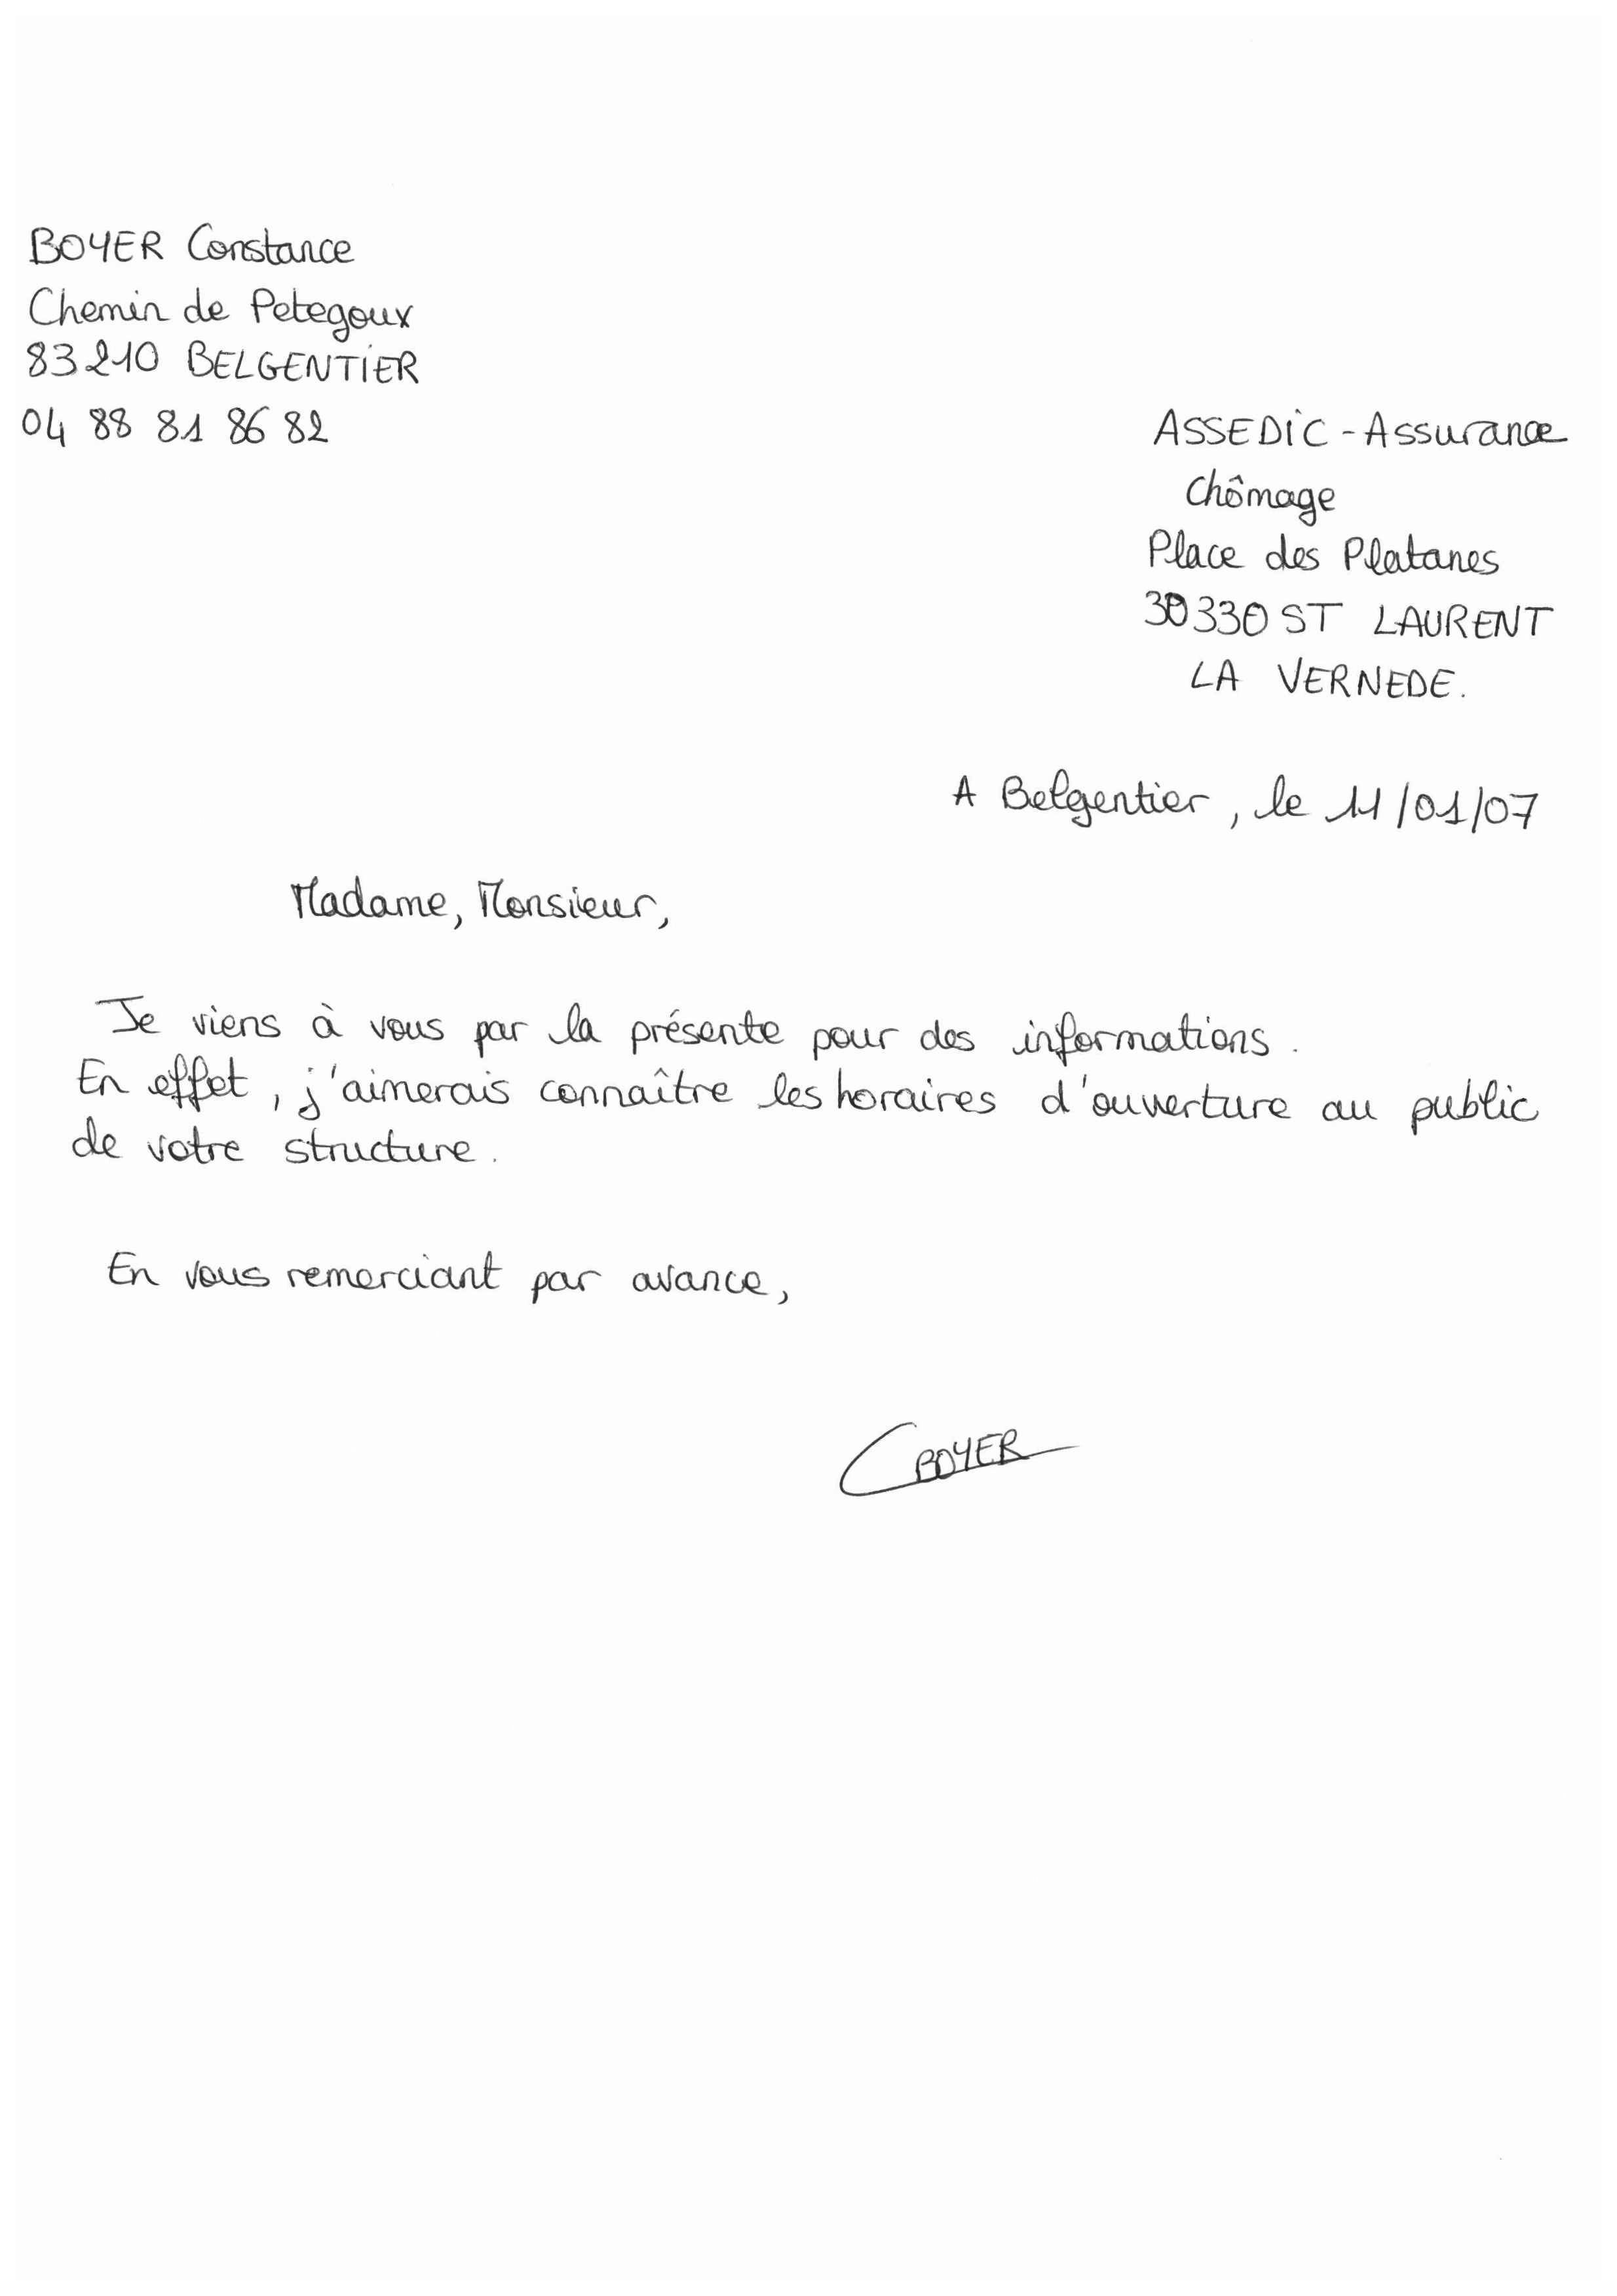 BOYER Constance
Chemin de Petegoux
83210 BELGENTIER
04 88 81 86 82
ASSEDIC - Assurance
Chômage
Place des Platanes
30330 ST LAURENT
LA VERNEDE.
A Belgentier, le 11/01/07
Madame, Monsieur,
Je viens à vous par la présente pour des informations.
En effet, j'aimerais connaître les horaires d'ouverture au public
de votre structure.
En vous remerciant par avance,
C BOYER